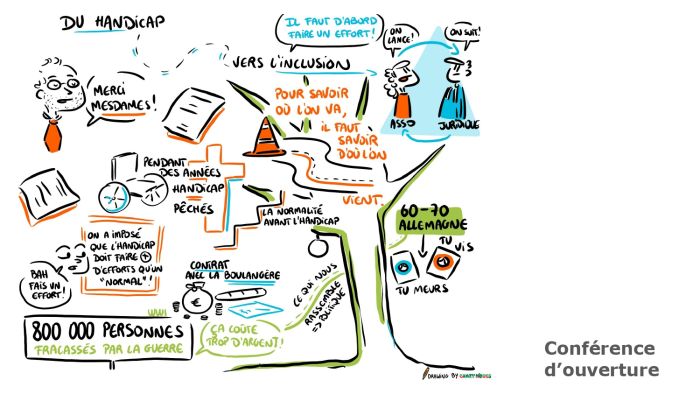 DU HANDICAP
VERS L'INCLUSION
IL FAUT D'ABORD
FAIRE UN EFFORT!
ON
LANCE!
ON SUIT!
ASSO
JURIDIQUE
MERCI
MESDAMES!
POUR SAVOIR
OÙ L'ON VA,
IL FAUT
SAVOIR
D'OÙ L'ON
VIENT.
PENDANT
DES ANNÉES
HANDICAP
PÊCHÉS
LA NORMALITÉ
AVANT L'HANDICAP
60-70
ALLEMAGNE
TU
VIS
TU MEURS
ON A IMPOSÉ
QUE L'HANDICAP
DOIT FAIRE +
D'EFFORTS QU'UN
"NORMAL"!
BAH
FAIS UN
EFFORT!
CONTRAT
AVEC LA BOULANGÈRE
€
CE QUI NOUS
RASSEMBLE
=> POLITIQUE
800 000 PERSONNES
FRACASSÉS PAR LA GUERRE
ÇA COÛTE
TROP D'ARGENT!
DRAWING BY
Conférence
d'ouverture